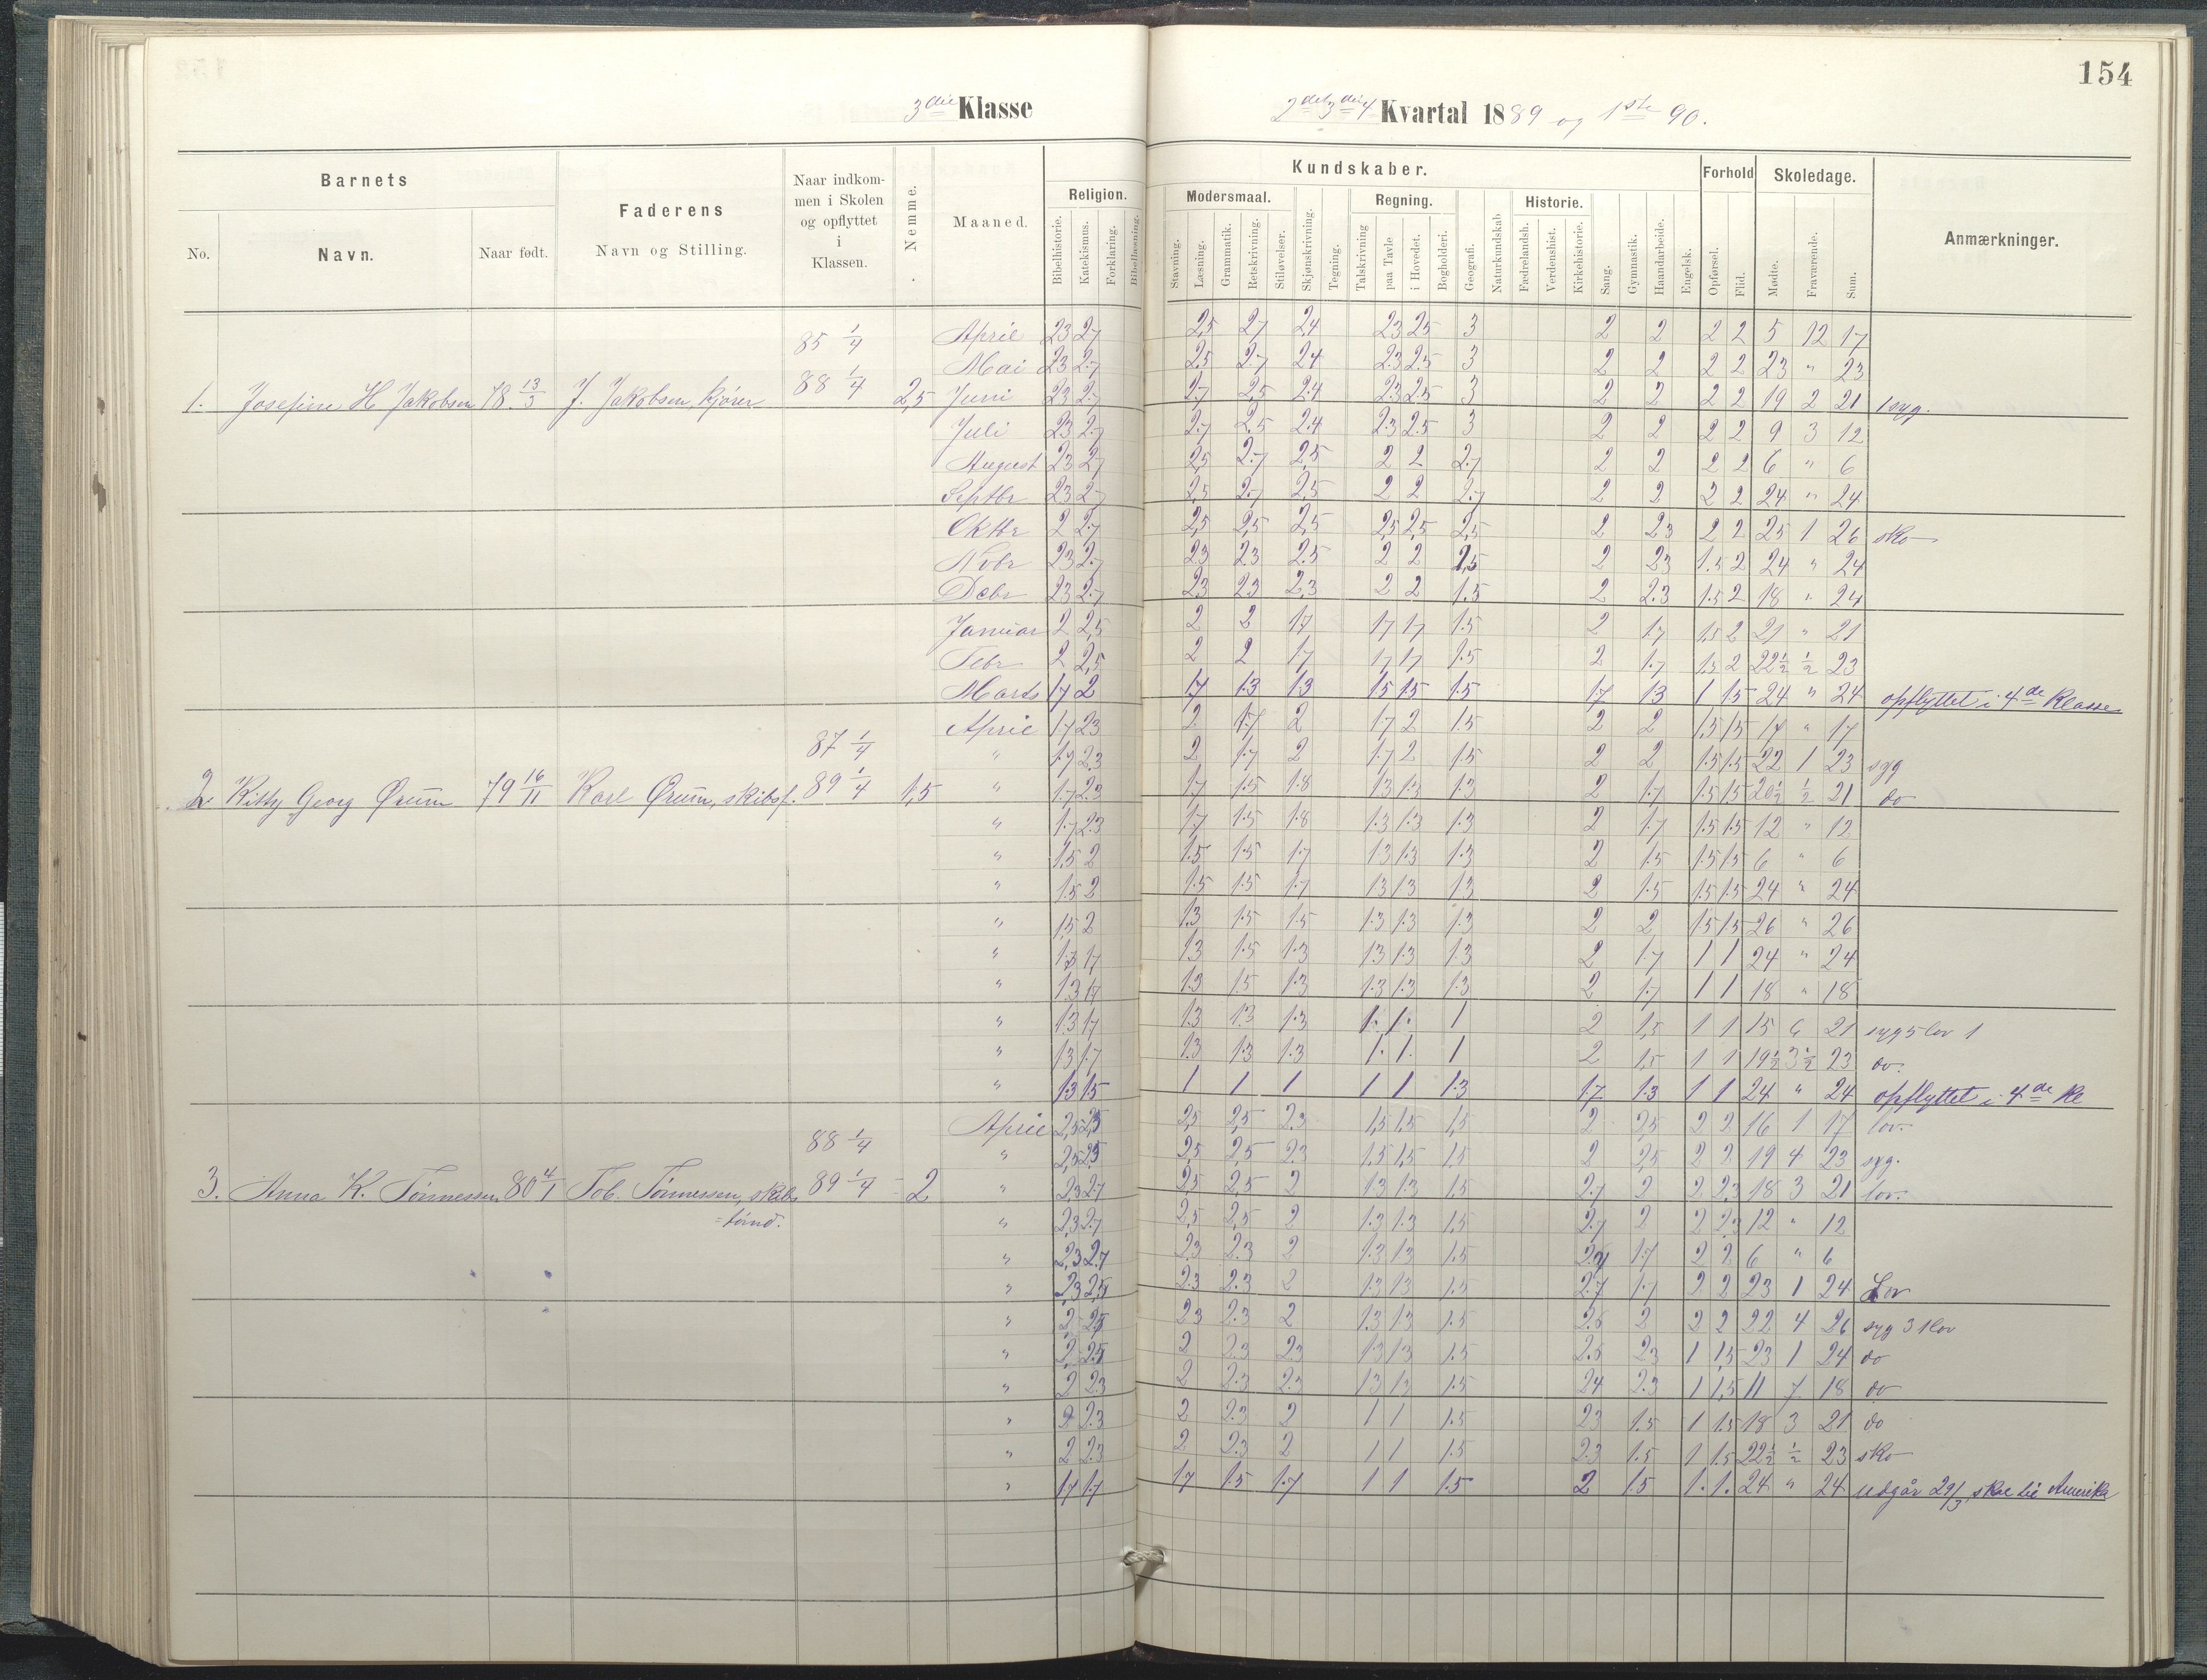 154
3die Klasse
2det 3die 4 Kvartal 1889 og 1ste 90.
Barnets
Faderens
Naar indkommen i Skolen og opflyttet i Klassen.
Nemme.
Maaned.
Religion.
Kundskaber.
Modersmaal.
Regning.
Historie.
Forhold
Skoledage.
Anmærkninger.
No.
Navn.
Naar født.
Navn og Stilling.
Bibelhistorie.
Katekismus.
Forklaring.
Bibellæsning.
Stavning.
Læsning.
Grammatik.
Retskrivning.
Stiløvelser.
Skjønskrivning.
Tegning.
Talskrivning
paa Tavle
i Hovedet.
Bogholderi.
Geografi.
Naturkundskab.
Fædrelandsh.
Verdenshist.
Kirkehistorie.
Sang.
Gymnastik.
Haandarbeide.
Engelsk.
Opførsel.
Flid.
Mødte.
Fraværende.
Sum.
85 1/4 April 23 27 2,5 27 24 23 25 3 2 2 2 2 5 12 17
Mai 23 2.7 2.5 2.7 24 2.3 2.5 3 2 2 2 2 23 " 23
1. Josefine H Jakobsen 78 13/3 J. Jakobsen, kjører 88 1/4 2,5 Juni 23 2.7 2.7 2,5 2.4 2.3 2.5 3 2 2 2 2 19 2 21 1 syg.
Juli 23 2.7 2.7 2.5 2.4 2.3 2.5 3 2 2 2 2 9 3 12
August 23 27 25 2.7 2.5 2 2 2.7 2 2 2 2 6 " 6
Septbr 23 2.7 2,5 2.7 2,5 2 2 2.7 2 2 2 2 24 " 24
Oktbr 2 2.7 2,5 2,5 2,5 2,5 2,5 2,5 2 23 2 2 25 1 26 sko
Novbr 23 2.7 23 23 2.5 2 2 2,5 2 23 1.5 2 24 " 24
Decbr 23 2.7 23 23 2,3 2 2 1.5 2 2.3 1.5 2 18 " 24
Januar 2 2,5 2 2 1.7 17 17 1.5 2 1.7 1,5 2 21 " 21
Febr 2 2,5 2 2 17 17 17 1.5 2 1.7 1.5 2 22 1/2 1/2 23
Marts 1.7 2 1.7 1.3 13 15 15 1.5 1.7 13 1 1.5 24 " 24 opflyttet i 4de Klasse
April 1.7 23 2 1.7 2 17 2 1.5 2 2 1.5 1.5 17 " 17
87 1/4 " 1.7 2,3 2 1.7 2 1.7 2 1.5 2 2 1.5 1.5 22 1 23 syg
2. Kitty Georg Ørum 79 16/11 Karl Ørum, skibsf. 89 1/4 1,5 " 1.7 2.3 1.7 1.5 1.8 13 1.3 1.3 2 1.7 1.5 1.5 20 1/2 1/2 21 do
" 1.7 2.3 1.7 1.5 1.8 1.3 1.3 1.3 2 1.7 1.5 1.5 12 " 12
" 1.5 2 1.5 1.5 1.7 13 1.3 1.3 2 1.5 1.5 1.5 6 " 6
" 1.5 2 1.5 1.5 1.7 13 13 13 2 1.5 1.5 1.5 24 " 24
" 1,5 2 1.3 1.5 1.5 1.3 1.3 1.3 2 2 1.5 1.5 26 " 26
" 1.3 17 13 1.5 1.3 13 1.3 1.3 2 1.7 1 1 24 " 24
" 1.3 17 1.3 1.5 1.3 1.3 1.3 1.3 2 1.7 1 1 18 " 18
" 1.3 17 1.3 1.3 1.3 1. 1. 1 2 1,5 1 1 15 6 21 syg 5 lov 1
" 13 1.7 1.3 1.3 1.3 1. 1. 1 2 1,5 1 1 19 1/2 3 1/2 23 do.
" 1.3 15 1 1 1 1 1 1.3 1.7 1.3 1 1 24 " 24 opflyttet i 4de Kl
88 1/4 April 2,5 2,5 2,5 2,5 2.3 1,5 1.5 1,5 2 25 2 2 16 1 17 lov.
" 2,5 2,5 2,5 2,5 2.3 1,5 1,5 1.5 2 2,5 2 2 19 4 23 syg.
3. Anna K. Tønnessen 80 4/1 Tob. Tønnessen, skibs 89 1/4 2 " 2.3 2.7 2,5 2,5 2 1.3 1.3 1,5 2.7 2 2 2,3 18 3 21 lov.
=tømd.
" 2,3 2.7 2,5 2,5 2 1.3 1.3 1,5 2.7 2 2 2.3 12 " 12
" 2,3 2.7 2.3 2.3 2 1.3 1.3 1.5 2.7 1.7 2 2 6 " 6
" 2,3 2,5 2.3 2.3 2 1.3 1.3 1.5 2.7 1.7 2 2 23 1 24 Lov
" 2 2,5 23 2.3 2 1.3 1.3 1.5 2.5 2 2 2 22 4 26 syg 3 1 lov
" 2 2.5 2 2.3 2.3 13 13 1.5 2.5 23 1 1,5 23 1 24 do
" 2 2.3 2 2.3 2.3 13 13 1.5 24 2.3 1 1,5 11 7 18 do
" 2 2.3 2 2.3 2 1 1 1.5 2.3 1.5 1 1.5 18 3 21 do
" 2 2.3 2 2.3 2 1 1 1.5 2.3 1.5 1 1.5 22 1/2 1/2 23 sko
" 1.7 1.7 1.7 1.5 1.7 1 1 1.5 2 1.5 1. 1. 24 " 24 udgår 29/3 skal til Amerika